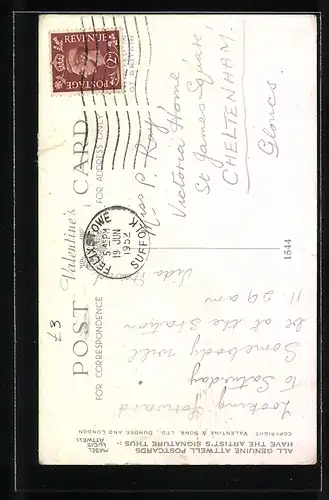 ALL GENUINE ATTWELL POSTCARDS
HAVE THE ARTIST'S SIGNATURE THUS :-
MABEL
LUCIE
ATTWELL
COPYRIGHT. VALENTINE & SONS, LTD., DUNDEE AND LONDON
POST Valentine's CARD
FOR CORRESPONDENCE
FOR ADDRESS ONLY
£3
REVENUE
POSTAGE
FELIXSTOWE
5 45 PM
19 JUN
1952
SUFFOLK
Looking forward
to Saturday
Somebody will
be at the Station
11 29 am
Miss P. Ray
Victoria Home,
St James Square,
CHELTENHAM.
Gloucs.
1544